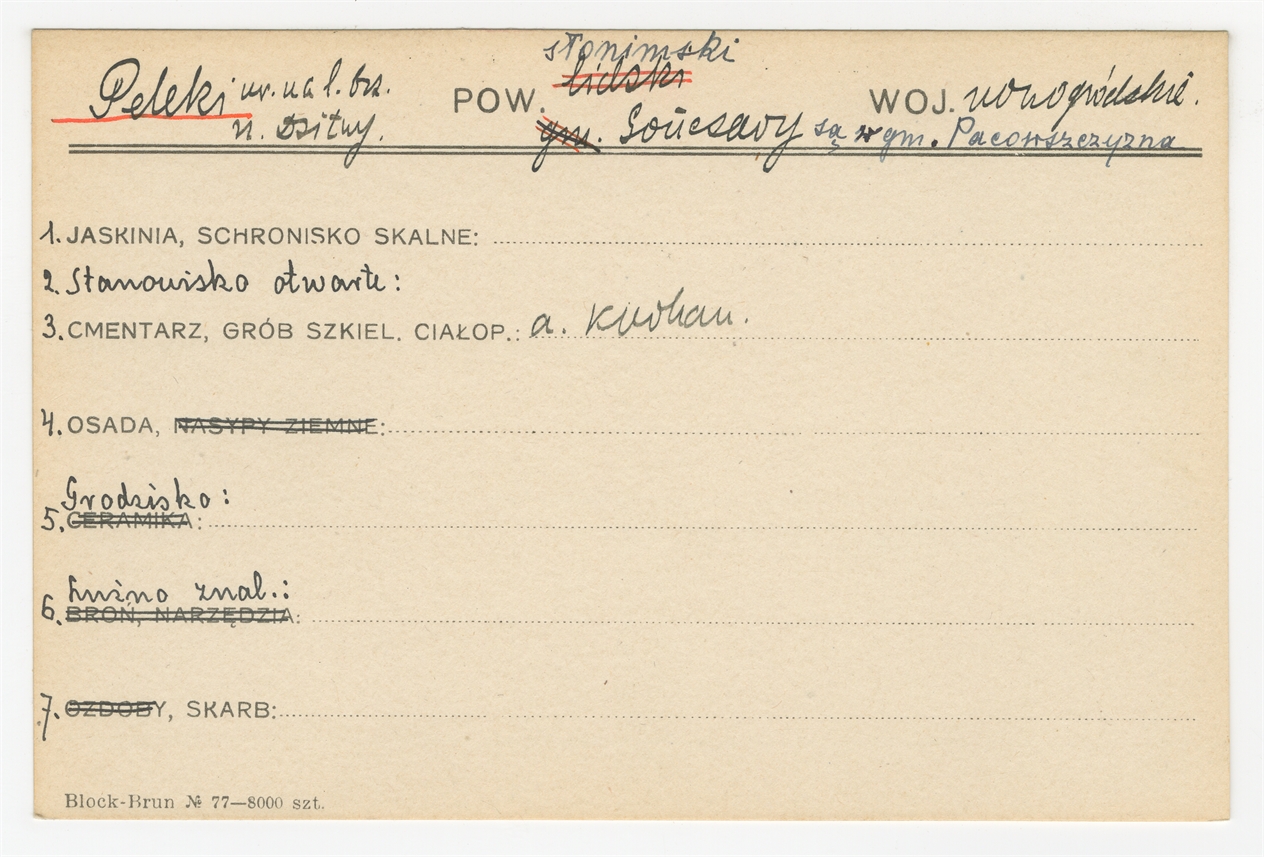 słonimski
Peleki ur. na l. brz. POW. lidski WOJ. nowogródzkie.
n. Dzitwy. gm. Sońcsady są w gm. Pacowszczyzna
1. JASKINIA, SCHRONISKO SKALNE:
2. Stanowisko otwarte:
3. CMENTARZ, GRÓB SZKIEL. CIAŁOP.: a. Kurhan.
4. OSADA, NASYPY ZIEMNE:
Grodzisko:
5. CERAMIKA:
Luźno znal.:
6. BROŃ, NARZĘDZIA:
7. OZDOBY, SKARB:
Block-Brun № 77—8000 szt.